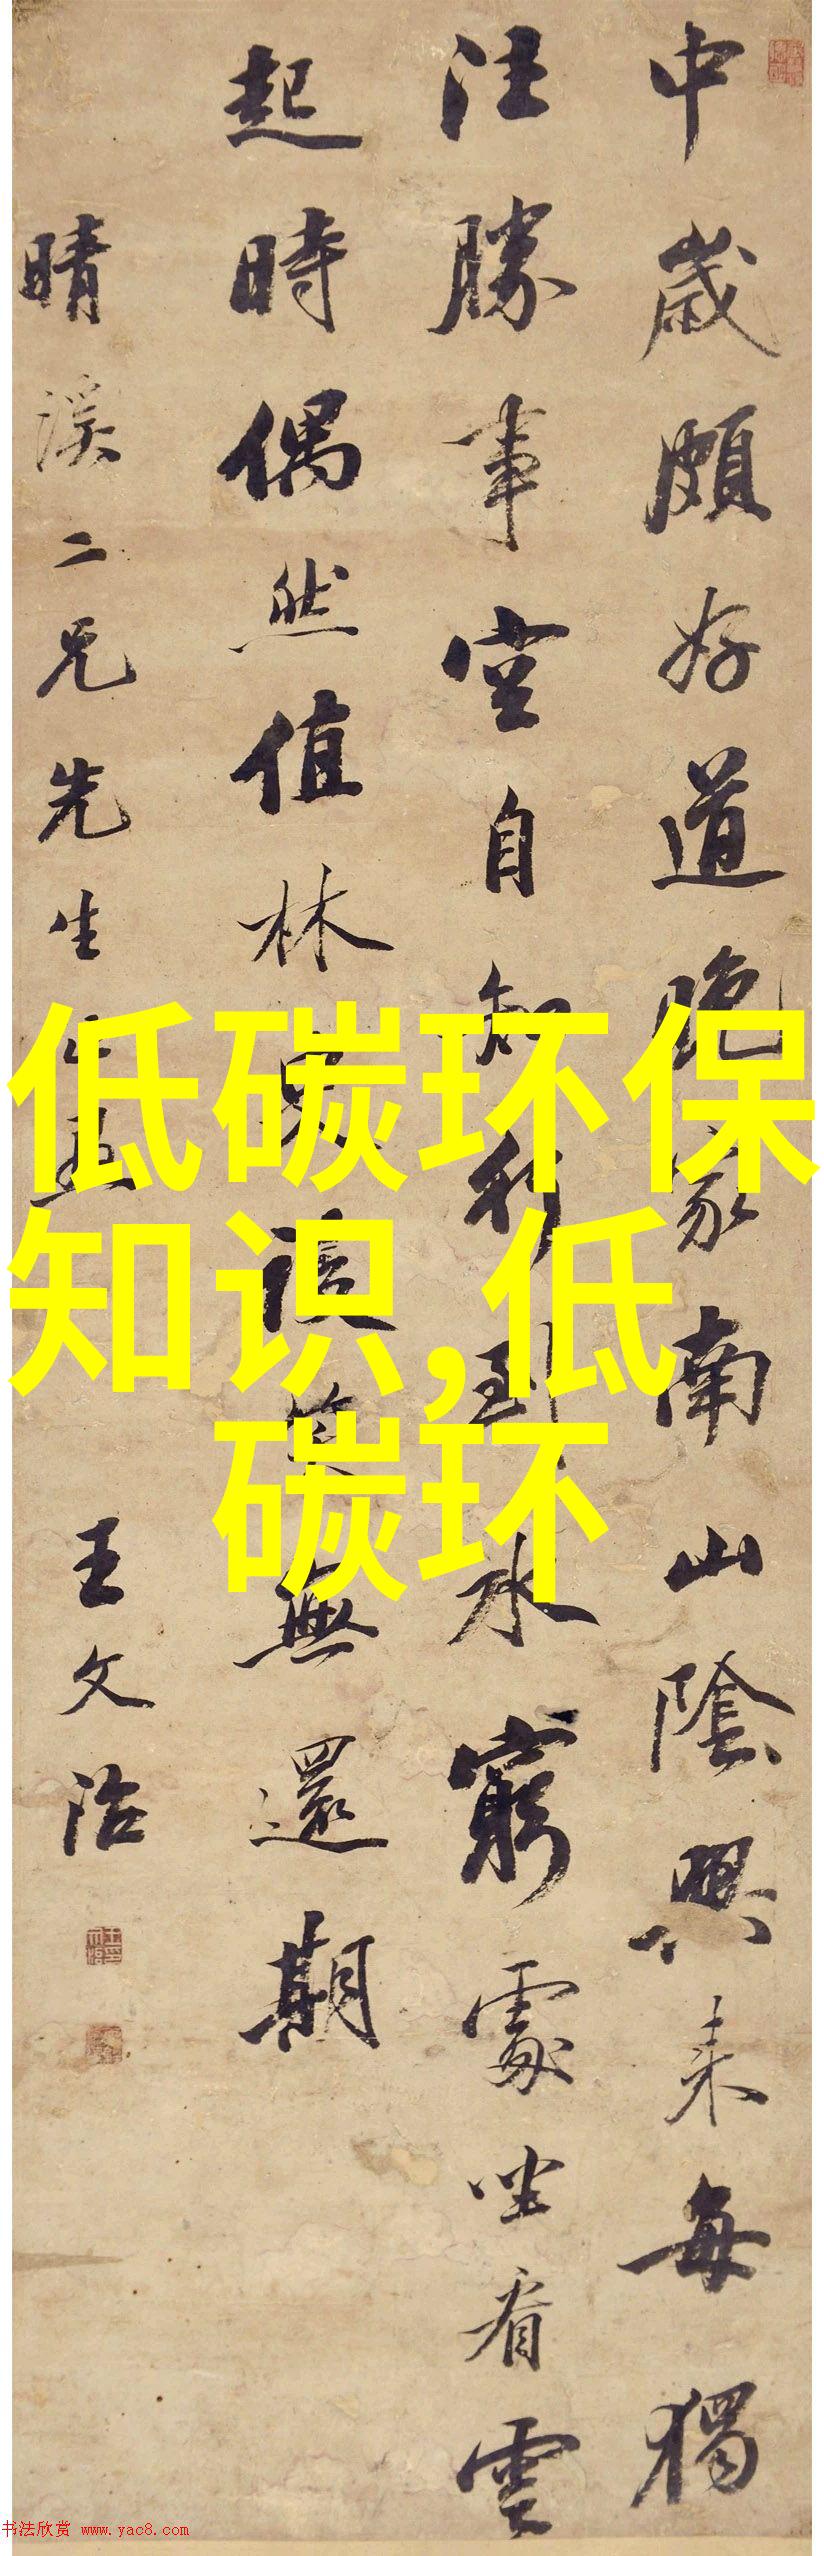 中歲頗好道晚家南山陰興来每獨
往勝事空自知行到水窮處坐看雲
起時偶然值林叟談笑無還期
晴溪二兄先生
王文治
低碳环保
知识,低
碳环
书法欣赏 www.yac8.com